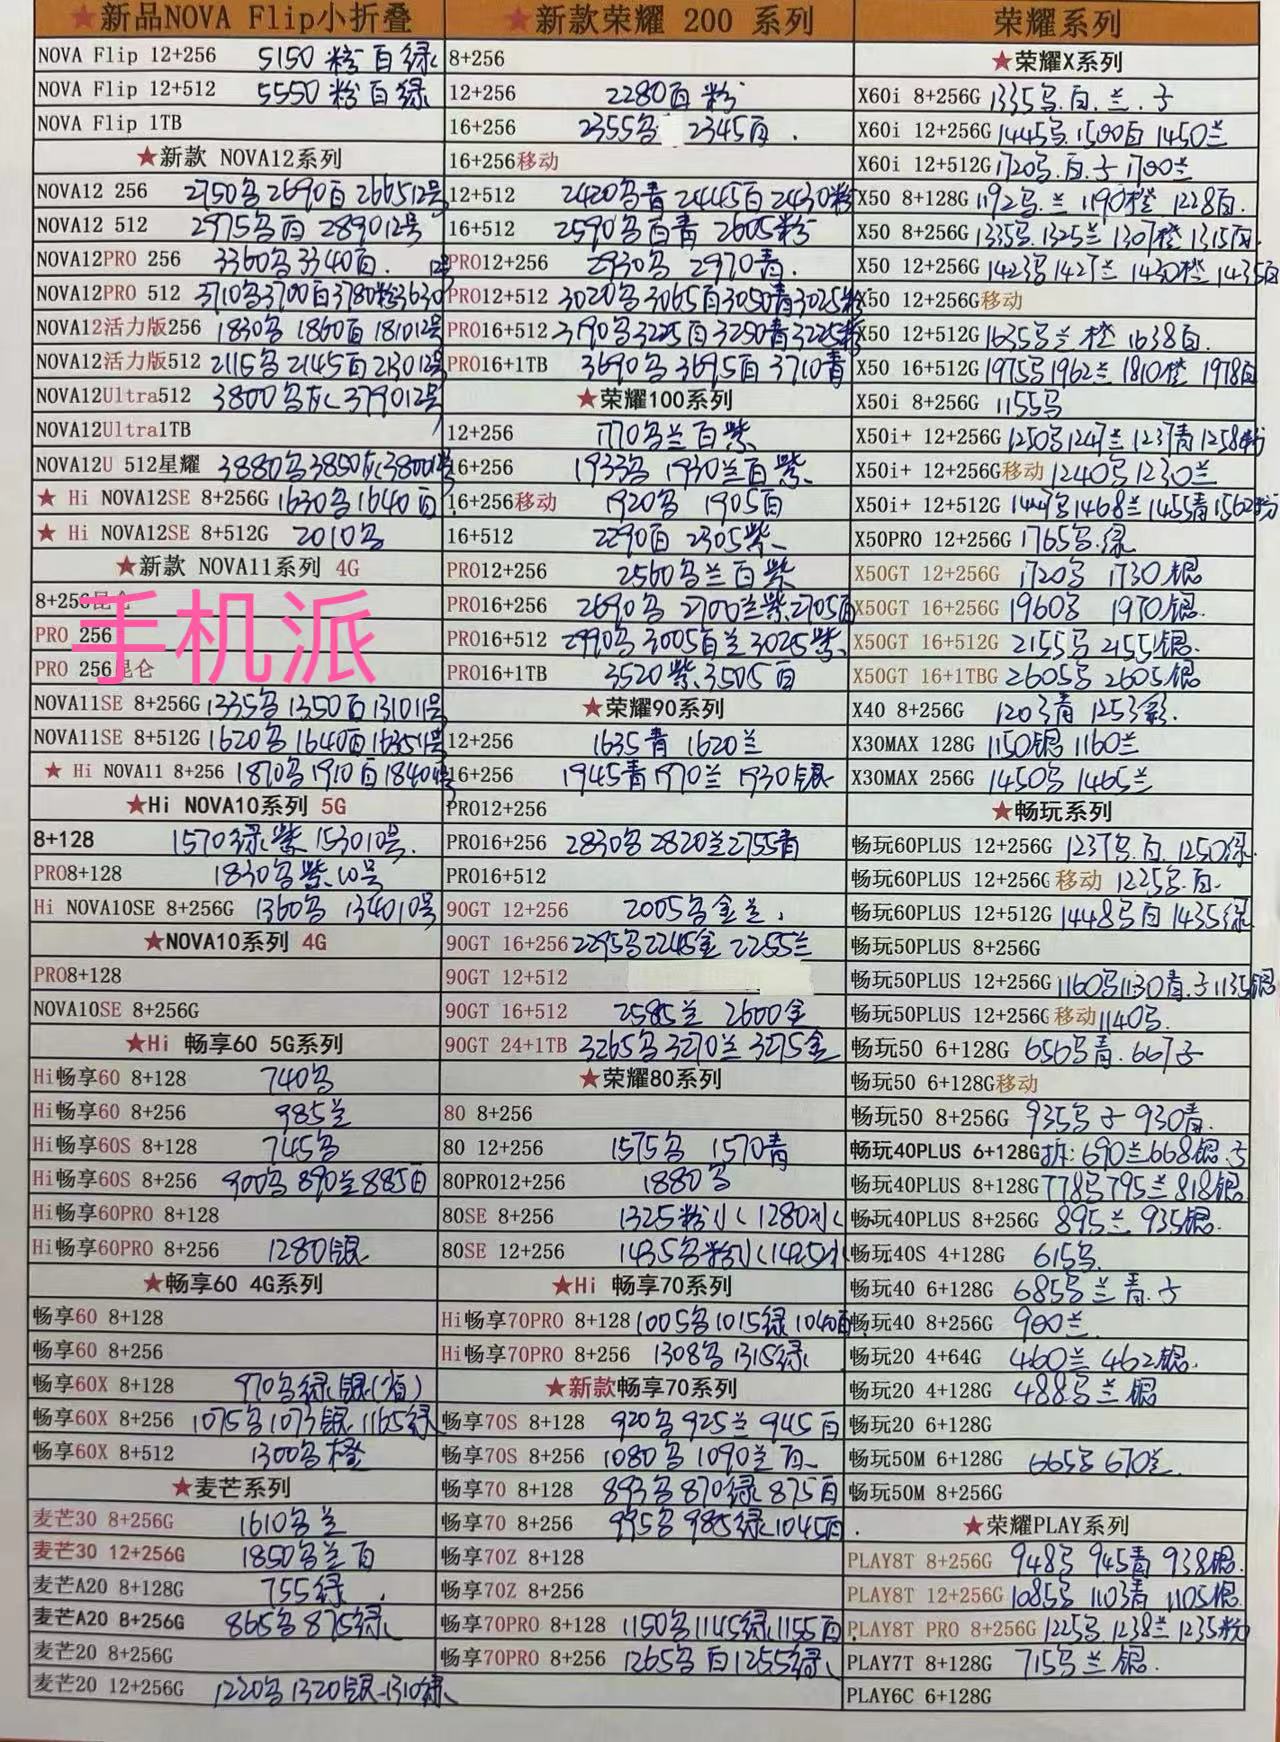 ★新品NOVA Flip小折叠
NOVA Flip 12+256 5150 粉白绿
NOVA Flip 12+512 5550 粉白绿
NOVA Flip 1TB
★新款 NOVA12系列
NOVA12 256 2750 2690白 266512号
NOVA12 512 2975 白 289012号
NOVA12PRO 256 3360 3340白.
NOVA12PRO 512 3710 3700白3780粉3630
NOVA12活力版256 1830 1860白 181012号
NOVA12活力版512 2115 2145白 213012号
NOVA12Ultra512 3800 灰 379012号
NOVA12Ultra1TB
NOVA12U 512星耀 3880 3850灰 380012号
★ Hi NOVA12SE 8+256G 1630 1640白
★ Hi NOVA12SE 8+512G 2010
★新款 NOVA11系列 4G
8+256昆仑
手机派
PRO 256
PRO 256昆仑
NOVA11SE 8+256G 1335 1350白131011号
NOVA11SE 8+512G 1620 1640白
★ Hi NOVA11 8+256 1870 1910白1840
★Hi NOVA10系列 5G
8+128 1570绿紫 153010号.
PRO8+128 1830 紫.10号
Hi NOVA10SE 8+256G 1360 134010号
★NOVA10系列 4G
PRO8+128
NOVA10SE 8+256G
★Hi 畅享60 5G系列
Hi畅享60 8+128 740
Hi畅享60 8+256 985兰
Hi畅享60S 8+128 745
Hi畅享60S 8+256 900 890兰885白
Hi畅享60PRO 8+128
Hi畅享60PRO 8+256 1280银
★畅享60 4G系列
畅享60 8+128
畅享60 8+256
畅享60X 8+128 970 绿.银
畅享60X 8+256 1075 1073银 1165绿
畅享60X 8+512 1300 橙
★麦芒系列
麦芒30 8+256G 1610 兰
麦芒30 12+256G 1850 兰白
麦芒A20 8+128G 755绿
麦芒A20 8+256G 865 875绿
麦芒20 8+256G
麦芒20 12+256G 1220 1320银 1310绿
★新款荣耀 200 系列
8+256
12+256 2280白粉
16+256 2355 2345白.
16+256移动
12+512 2420 青 2445白 2430粉
16+512 2590 白青 2605粉
PRO12+256 2930 2970青.
PRO12+512 3020 3065白3050青3025粉
PRO16+512 3190 3225白3250青3225粉
PRO16+1TB 3690 3695白 3710青
★荣耀100系列
12+256 1770 兰白紫
16+256 1933 1930兰白紫.
16+256移动 1920 1905白
16+512 2290白 2305紫
PRO12+256 2560 兰白紫
PRO16+256 2690 2700兰紫2705白
PRO16+512 2990 3005白兰 3025紫
PRO16+1TB 3520紫.3505白
★荣耀90系列
12+256 1635青 1620兰
16+256 1945青1970兰 1930银
PRO12+256
PRO16+256 2830 2820兰2755青
PRO16+512
90GT 12+256 2005 金兰.
90GT 16+256 2295 2245金 2255兰
90GT 12+512
90GT 16+512 2585兰 2600金
90GT 24+1TB 3265 3270兰 3275金
★荣耀80系列
80 8+256
80 12+256 1575 1570青
80PRO12+256 1880
80SE 8+256 1325粉 1280
80SE 12+256 1435 粉 1425
★Hi 畅享70系列
Hi畅享70PRO 8+128 1005 1015绿 1040白
Hi畅享70PRO 8+256 1308 1315绿
★新款畅享70系列
畅享70S 8+128 920 925兰 945白
畅享70S 8+256 1080 1090兰白
畅享70 8+128 893 870绿 875白
畅享70 8+256 995 985绿 1045白.
畅享70Z 8+128
畅享70Z 8+256
畅享70PRO 8+128 1150 1145绿1155白.
畅享70PRO 8+256 1265 白1255绿
荣耀系列
★荣耀X系列
X60i 8+256G 1335 .白.兰.
X60i 12+256G 1445 .1500白 1450兰
X60i 12+512G 1720 .白. 1700兰
X50 8+128G 1192 .兰 1190橙 1228白.
X50 8+256G 1335 .1325兰 1307橙 1315白.
X50 12+256G 1423 1427兰 1430橙 1435白
X50 12+256G移动
X50 12+512G 1635 兰橙 1638白.
X50 16+512G 1975 1962兰 1810橙 1978白
X50i 8+256G 1155
X50i+ 12+256G 1250 1247兰 1237青 1258粉
X50i+ 12+256G移动 1240 1230兰
X50i+ 12+512G 1468兰 1455青1562粉
X50PRO 12+256G 1765 .绿
X50GT 12+256G 1720 1730银
X50GT 16+256G 1960 1970银.
X50GT 16+512G 2155 2155银.
X50GT 16+1TBG 2605 2605银
X40 8+256G 1203青 1253彩.
X30MAX 128G 1150银 1160兰
X30MAX 256G 1450 1465兰
★畅玩系列
畅玩60PLUS 12+256G 1237 .白. 1250绿
畅玩60PLUS 12+256G 移动 1225 .白.
畅玩60PLUS 12+512G 1448 白 1435绿
畅玩50PLUS 8+256G
畅玩50PLUS 12+256G 1160 1130青. 1135银
畅玩50PLUS 12+256G 移动 1140 .
畅玩50 6+128G 656 青. 667
畅玩50 6+128G移动
畅玩50 8+256G 935 930青.
畅玩40PLUS 6+128G 拆: 690兰668银.
畅玩40PLUS 8+128G 778 795兰 818银
畅玩40PLUS 8+256G 895兰 935银.
畅玩40S 4+128G 615
畅玩40 6+128G 685 兰青.
畅玩40 8+256G 900兰
畅玩20 4+64G 460兰 462银.
畅玩20 4+128G 488 兰银
畅玩20 6+128G
畅玩50M 6+128G 665 670兰.
畅玩50M 8+256G
★荣耀PLAY系列
PLAY8T 8+256G 948 945青 938银.
PLAY8T 12+256G 1085 1103青 1105银.
PLAY8T PRO 8+256G 1225 1238兰 1235粉
PLAY7T 8+128G 715 兰银.
PLAY6C 6+128G